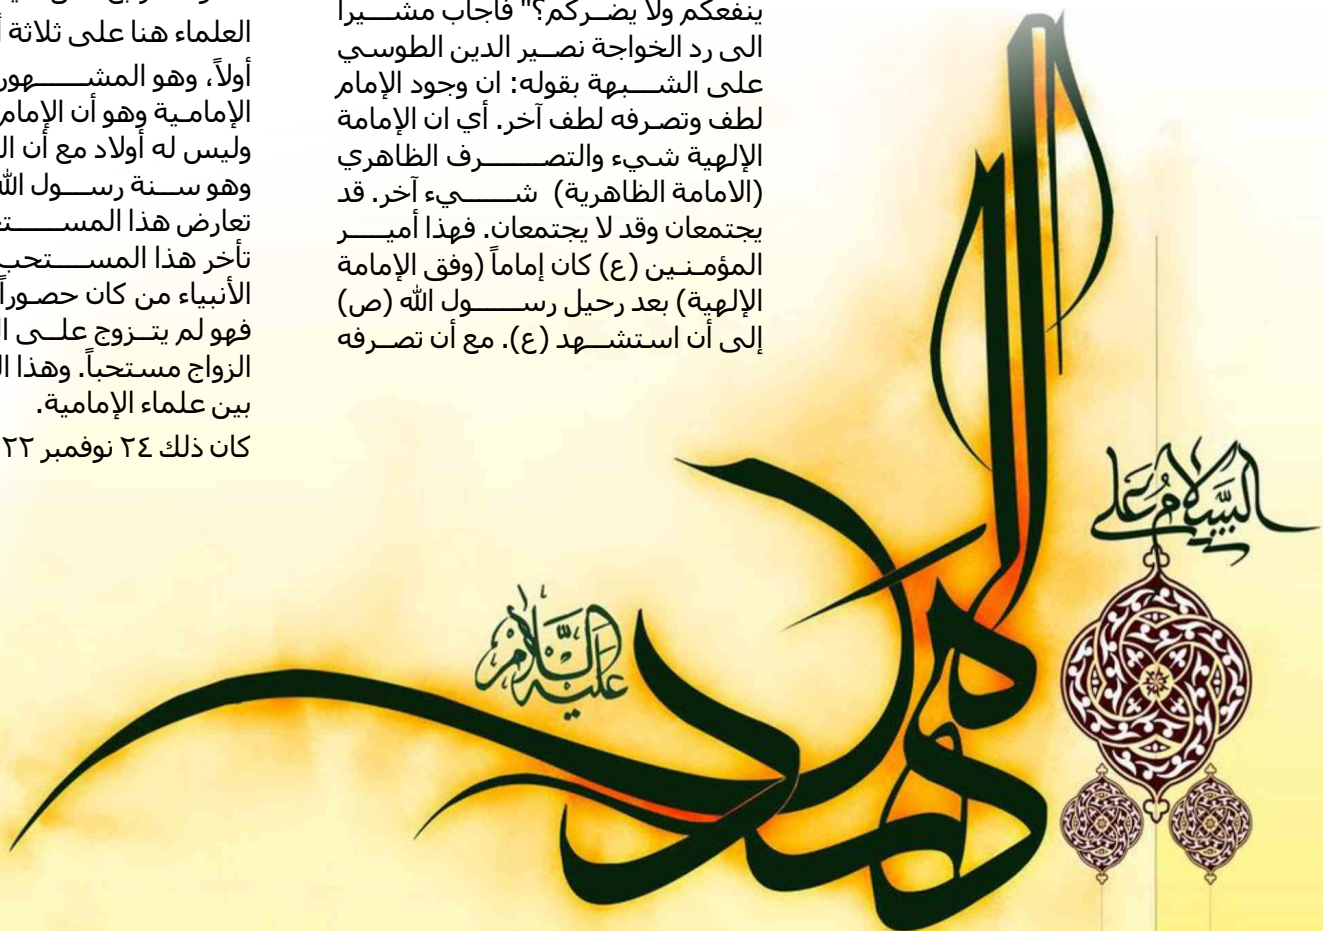 ينفعكم ولا يضركم؟" فأجاب مشيراً
الى رد الخواجة نصير الدين الطوسي
على الشبهة بقوله: ان وجود الإمام
لطف وتصرفه لطف آخر. أي ان الإمامة
الإلهية شيء والتصرف الظاهري
(الامامة الظاهرية) شيء آخر. قد
يجتمعان وقد لا يجتمعان. فهذا أمير
المؤمنين (ع) كان إماماً (وفق الإمامة
الإلهية) بعد رحيل رسول الله (ص)
إلى أن استشهد (ع). مع أن تصرفه
العلماء هنا على ثلاثة
أولاً، وهو المشهور
الإمامية وهو أن الإمام
وليس له أولاد مع أن
وهو سنة رسول الله
تعارض هذا
تأخر هذا المستحب
الأنبياء من كان حصوراً
فهو لم يتزوج على
الزواج مستحباً. وهذا
بين علماء الإمامية.
كان ذلك ٢٤ نوفمبر ٢٢
السلام على
المهدي
عليه السلام